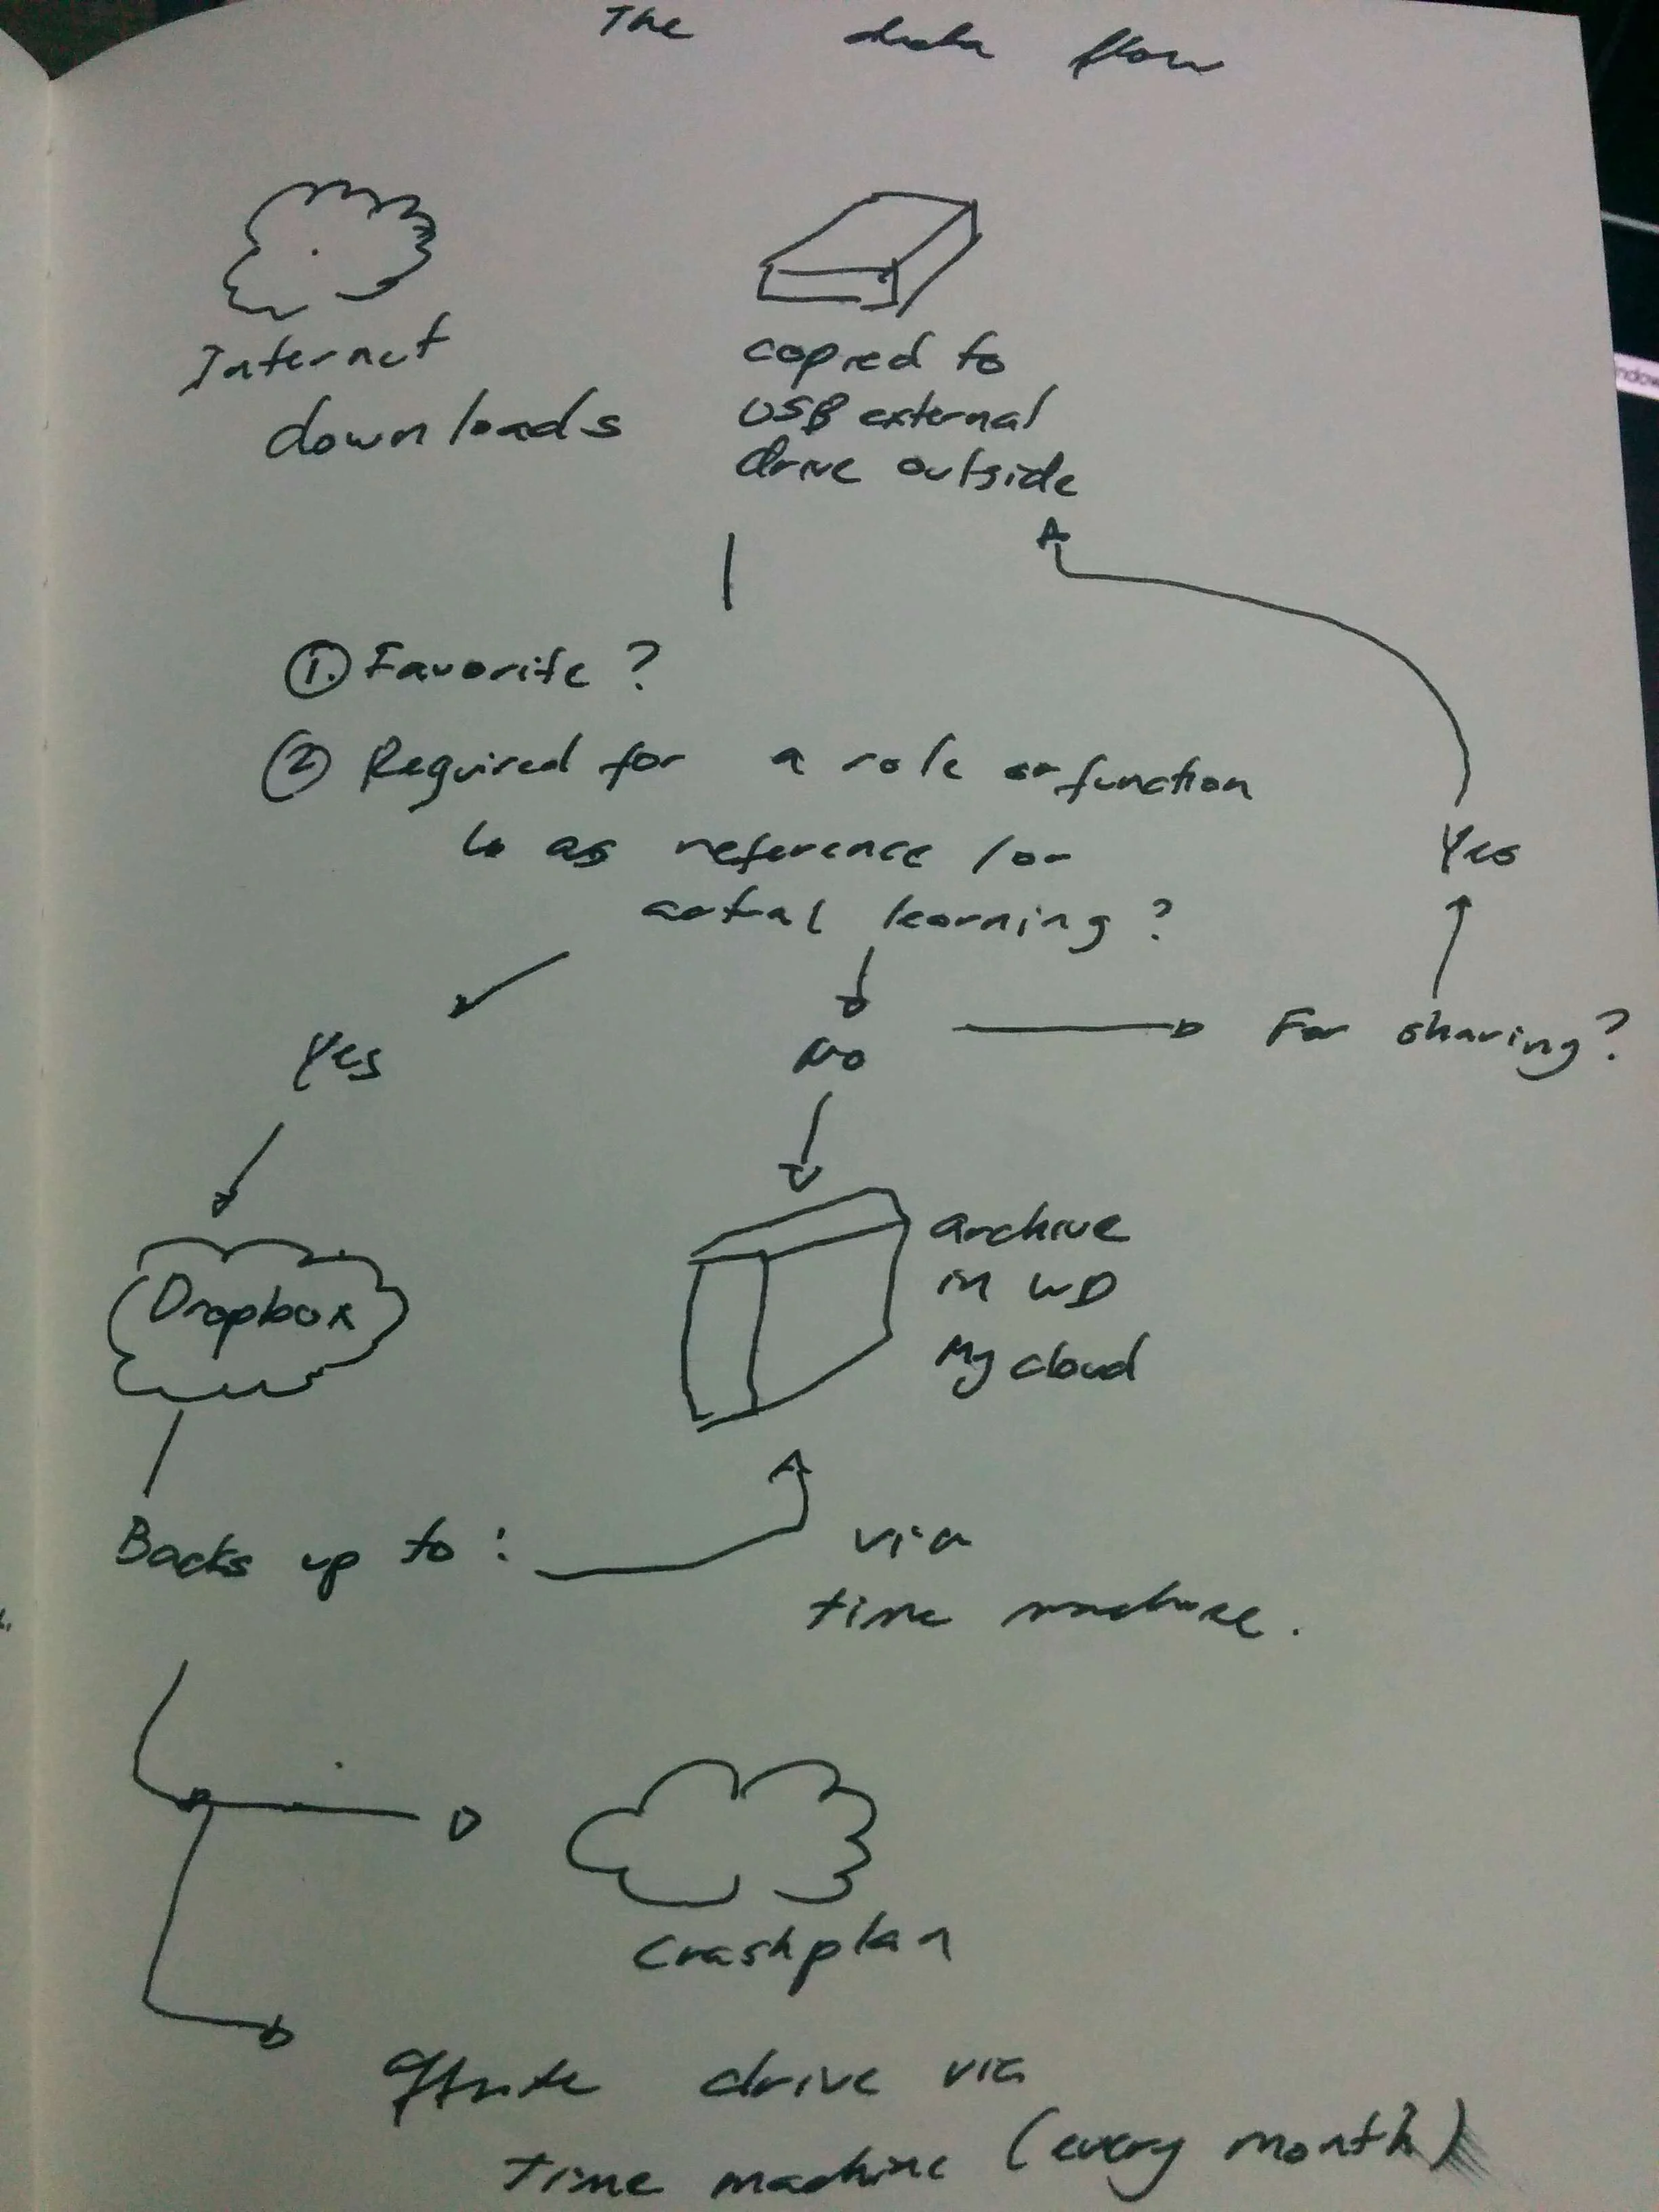 The data flow
Internet
downloads
copied to
USB external
drive outside
1. Favorite?
2 Required for a role or function
↳ as reference / or
actual learning?
Yes
Yes
No
For sharing?
Dropbox
archive
in WD
My cloud
Backs up to:
via
time machine.
Crashplan
offsite drive via
time machine (every month)
ndow